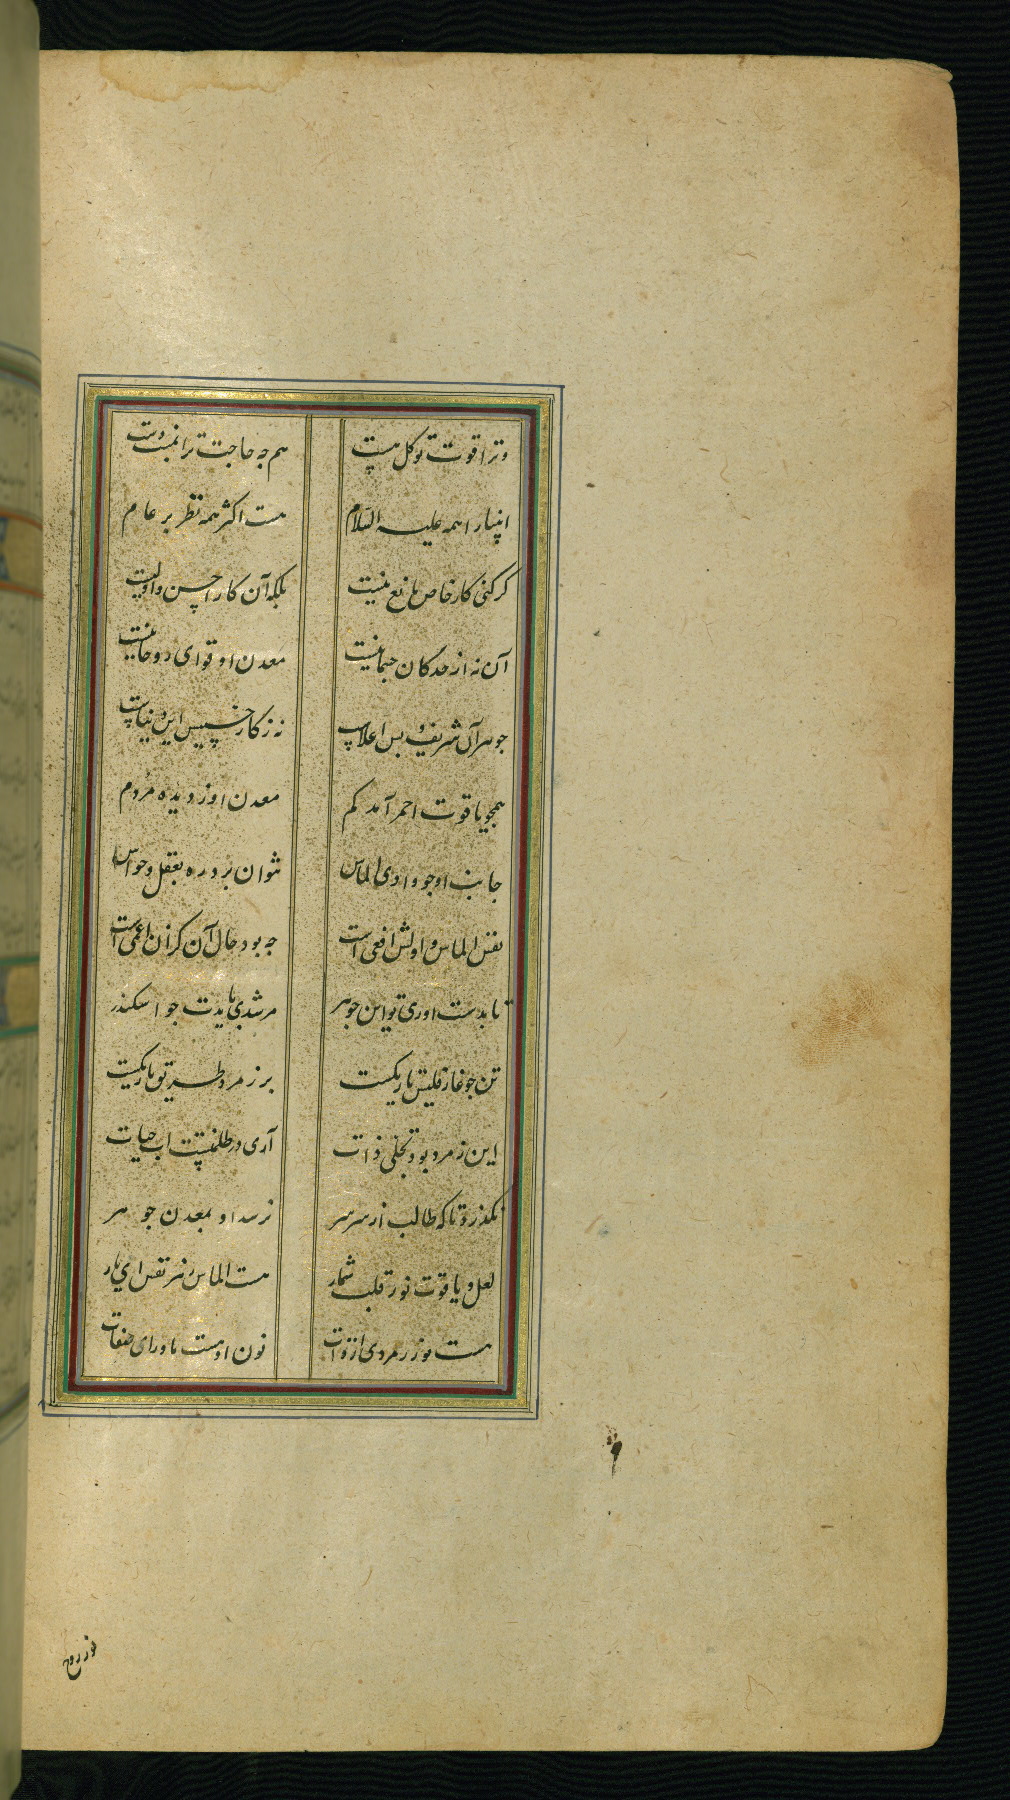 وترا قوت توکل هست هم چه حاجت ترا نمت
انبیا را همه علیه السلام هست اکثر همه نظر بر عام
کر کنی کار خاص مانع نیست بلکه آن کار احسن و اولیست
آن نه از حد کان جسمانیست معدن او قوای روحانیست
جوهر آن شریف و بس اعلاست نه ز کار خسیس این دنیاست
همچو یاقوت احمر آمد کم معدن او ز دیده مردم
جانب او چو وادی الماس نتوان برد ره بعقل و حواس
نفس الماس و اولش افعی است چه بود حال آن کزان اعمی است
تا بدست اوری تو این جوهر مرشدی بایدت چو اسکندر
تن چو غار قلیش تاریکست بر زمرد طریق باریکست
این زمرد بود تجلی ذات آری در ظلمتست اب حیات
نکذرد تا که طالب از سر سر نرسد او بمعدن جوهر
لعل و یاقوت نور قلب شمار هست الماس نیر نفس ای یار
هست نور زمردی از ذات نون او هست ماورای صفات
نور روح